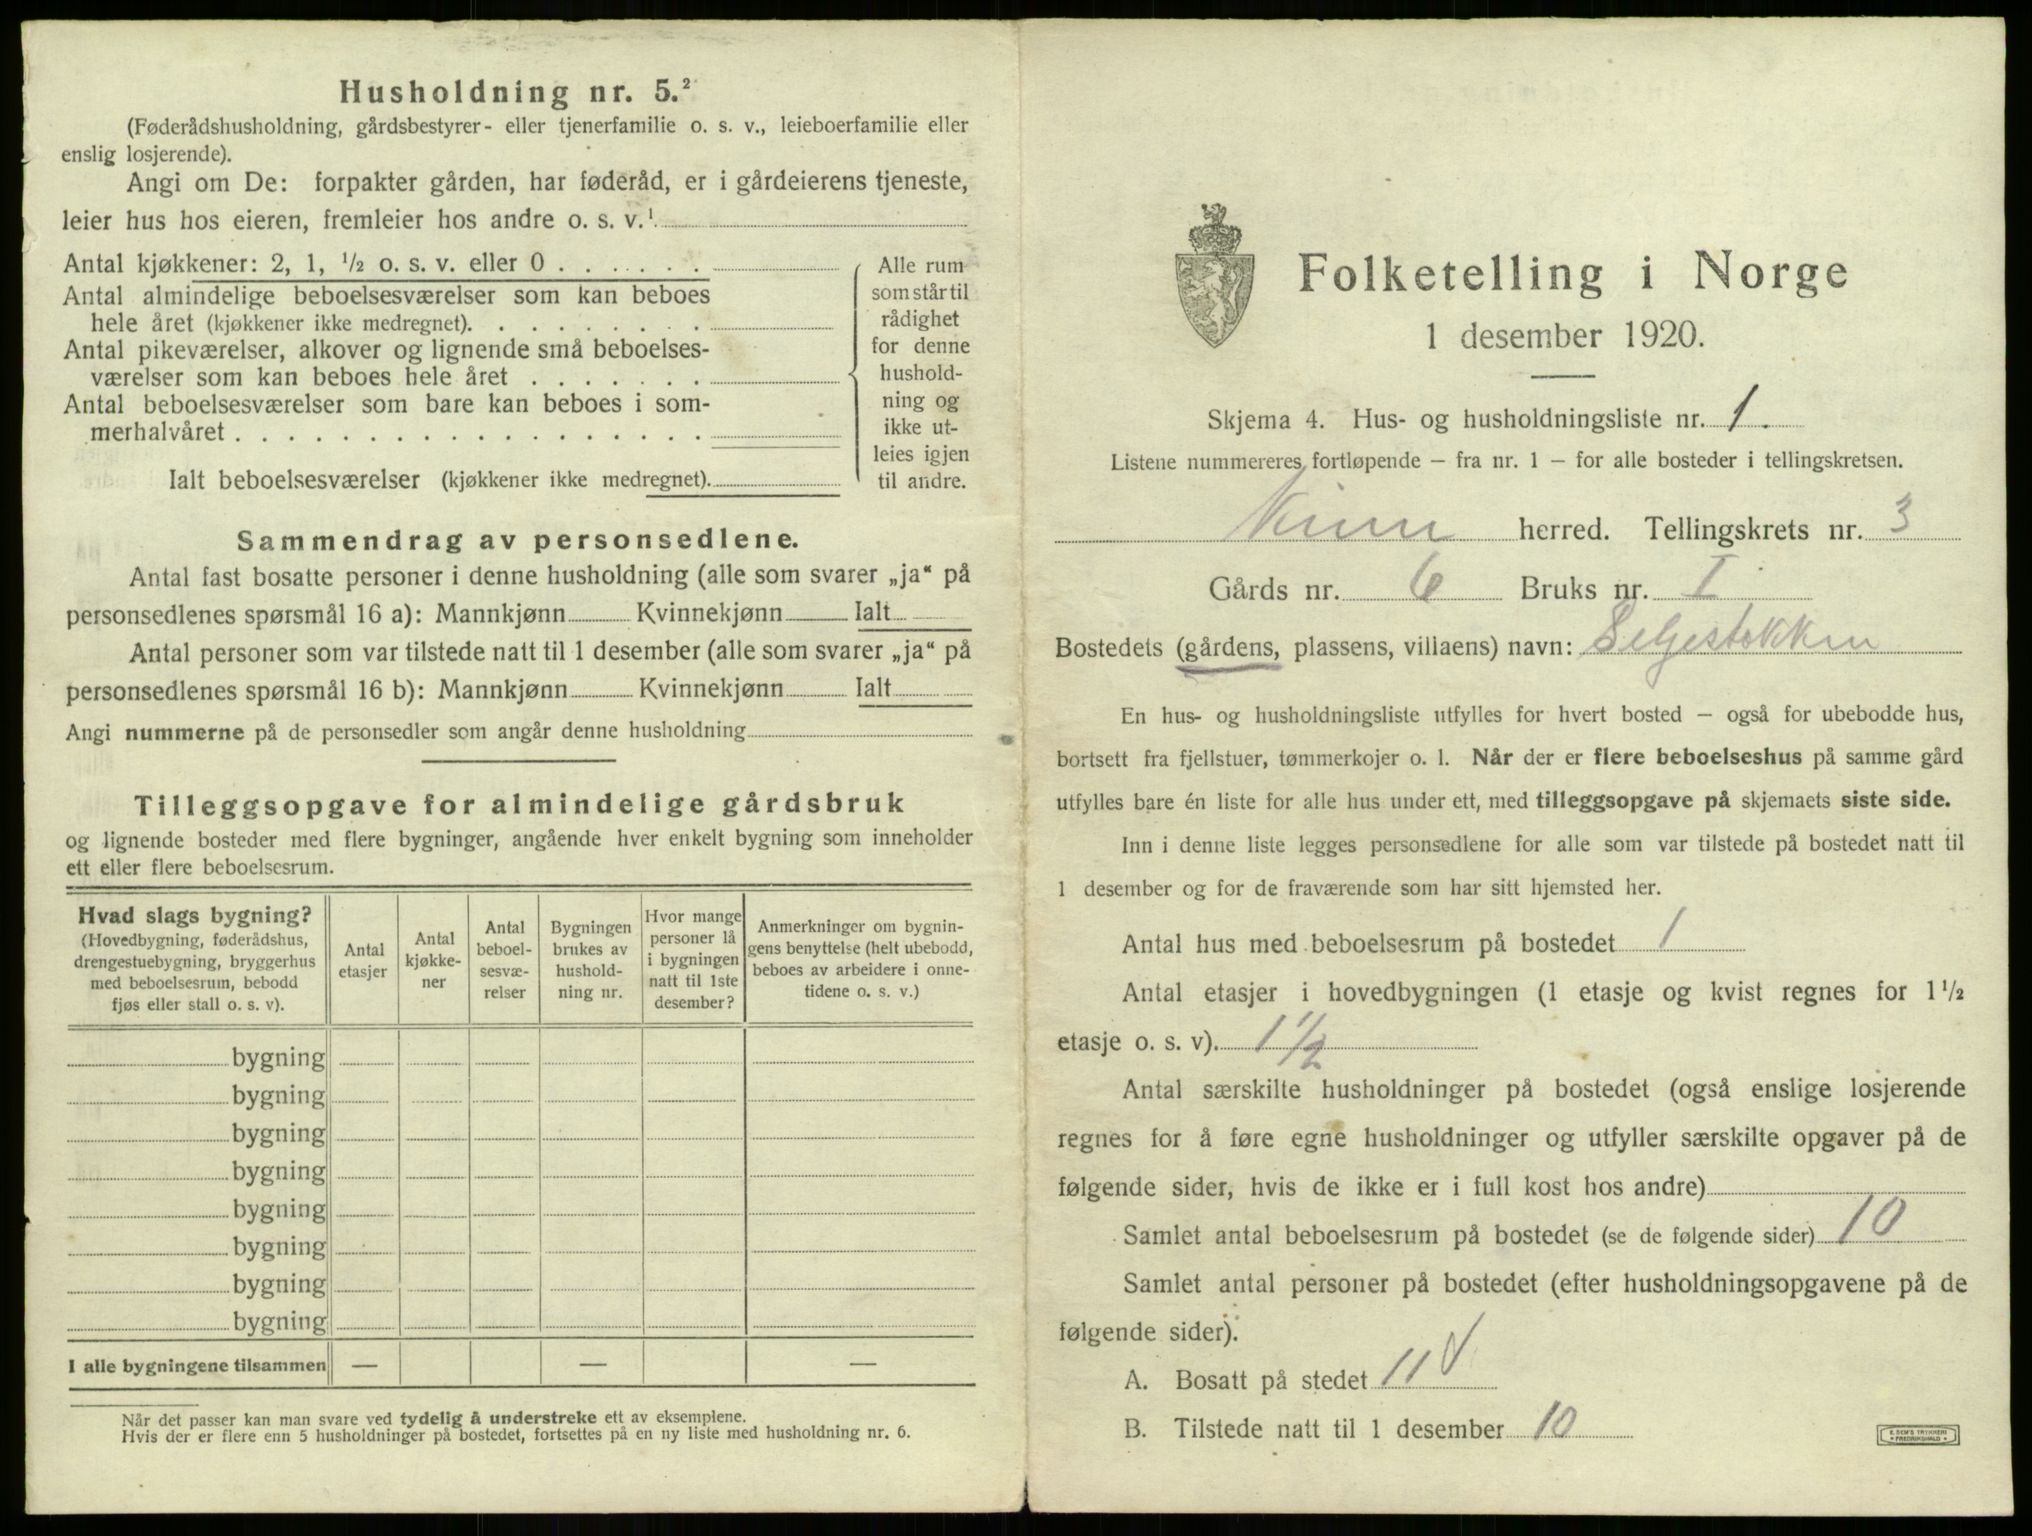 Husholdning nr. 5.²
(Føderådshusholdning, gårdsbestyrer- eller tjenerfamilie o. s. v., leieboerfamilie eller
enslig losjerende).
Angi om De: forpakter gården, har føderåd, er i gårdeierens tjeneste,
leier hus hos eieren, fremleier hos andre o. s. v.¹
Antal kjøkkener: 2, 1, ½ o. s. v. eller 0
Antal almindelige beboelsesværelser som kan beboes
hele året (kjøkkener ikke medregnet).
Antal pikeværelser, alkover og lignende små beboelses-
værelser som kan beboes hele året
Antal beboelsesværelser som bare kan beboes i som-
merhalvåret
Ialt beboelsesværelser (kjøkkener ikke medregnet).
Alle rum
som står til
rådighet
for denne
hushold-
ning og
ikke ut-
leies igjen
til andre.
Sammendrag av personsedlene.
Antal fast bosatte personer i denne husholdning (alle som svarer „ja“ på
personsedlenes spørsmål 16 a): Mannkjønn Kvinnekjønn Ialt
Antal personer som var tilstede natt til 1 desember (alle som svarer „ja“ på
personsedlenes spørsmål 16 b): Mannkjønn Kvinnekjønn Ialt
Angi nummerne på de personsedler som angår denne husholdning
Tilleggsopgave for almindelige gårdsbruk
og lignende bosteder med flere bygninger, angående hver enkelt bygning som inneholder
ett eller flere beboelsesrum.
Hvad slags bygning?
(Hovedbygning, føderådshus,
drengestuebygning, bryggerhus
med beboelsesrum, bebodd
fjøs eller stall o. s. v).
Antal
etasjer
Antal
kjøkke-
ner
Antal
beboel-
sesvæ-
relser
Bygningen
brukes av
hushold-
ning nr.
Hvor mange
personer lå
i bygningen
natt til 1ste
desember?
Anmerkninger om bygnin-
gens benyttelse (helt ubebodd,
beboes av arbeidere i onne-
tidene o. s. v.)
bygning
bygning
bygning
bygning
bygning
bygning
bygning
bygning
I alle bygningene tilsammen — — —
Når det passer kan man svare ved tydelig å understreke ett av eksemplene.
Hvis der er flere enn 5 husholdninger på bostedet, fortsettes på en ny liste med husholdning nr. 6.
Folketelling i Norge
1 desember 1920.
Skjema 4. Hus- og husholdningsliste nr. 1.
Listene nummereres fortløpende – fra nr. 1 – for alle bosteder i tellingskretsen.
Kinn herred. Tellingskrets nr. 3
Gårds nr. 6 Bruks nr. I
Bostedets (gårdens, plassens, villaens) navn: Seljestokken
En hus- og husholdningsliste utfylles for hvert bosted – også for ubebodde hus,
bortsett fra fjellstuer, tømmerkojer o. l. Når der er flere beboelseshus på samme gård
utfylles bare én liste for alle hus under ett, med tilleggsopgave på skjemaets siste side.
Inn i denne liste legges personsedlene for alle som var tilstede på bostedet natt til
1 desember og for de fraværende som har sitt hjemsted her.
Antal hus med beboelsesrum på bostedet 1
Antal etasjer i hovedbygningen (1 etasje og kvist regnes for 1½
etasje o. s. v). 1½
Antal særskilte husholdninger på bostedet (også enslige losjerende
regnes for å føre egne husholdninger og utfyller særskilte opgaver på de
følgende sider, hvis de ikke er i full kost hos andre)
Samlet antal beboelsesrum på bostedet (se de følgende sider) 10
Samlet antal personer på bostedet (efter husholdningsopgavene på de
følgende sider).
A. Bosatt på stedet 11
B. Tilstede natt til 1 desember 10
E. SEM'S TRYKKERI
FREDRIKSHALD